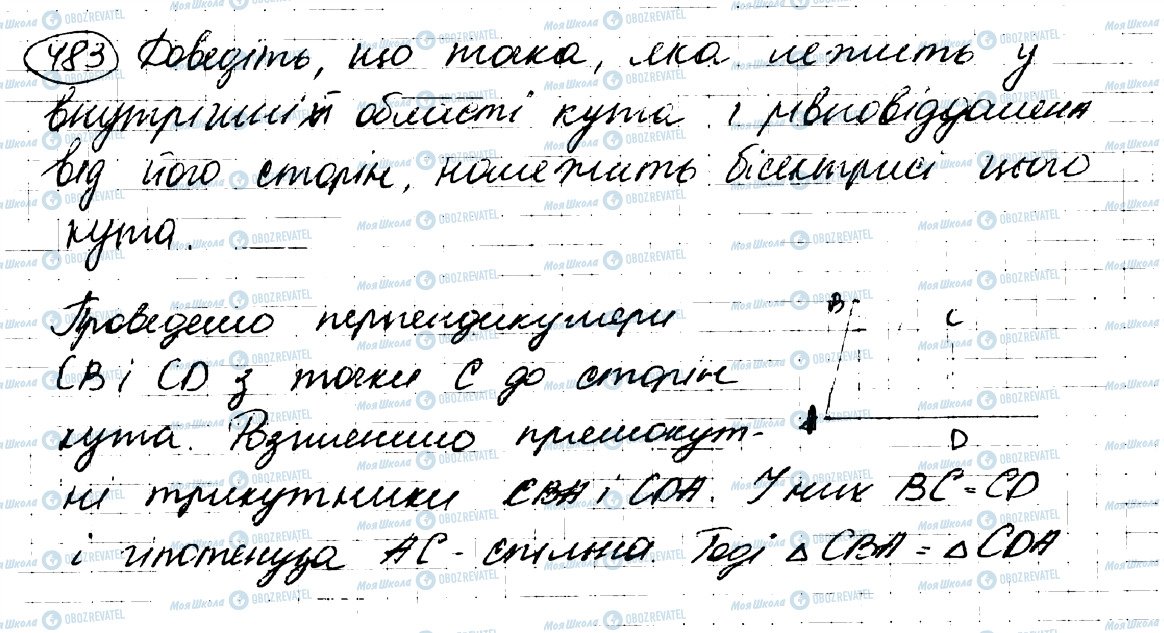 483 Доведіть, що точка, яка лежить у
внутрішній області кута і рівновіддалена
від його сторін, належить бісектрисі цього
кута.
Проведемо перпендикуляри
CB і CD з точки C до сторін
кута. Розглянемо прямокут-
ні трикутники CBA і CDA. У них BC=CD
і гіпотенуза AC - спільна. Тоді △CBA = △CDA
B
C
A
D